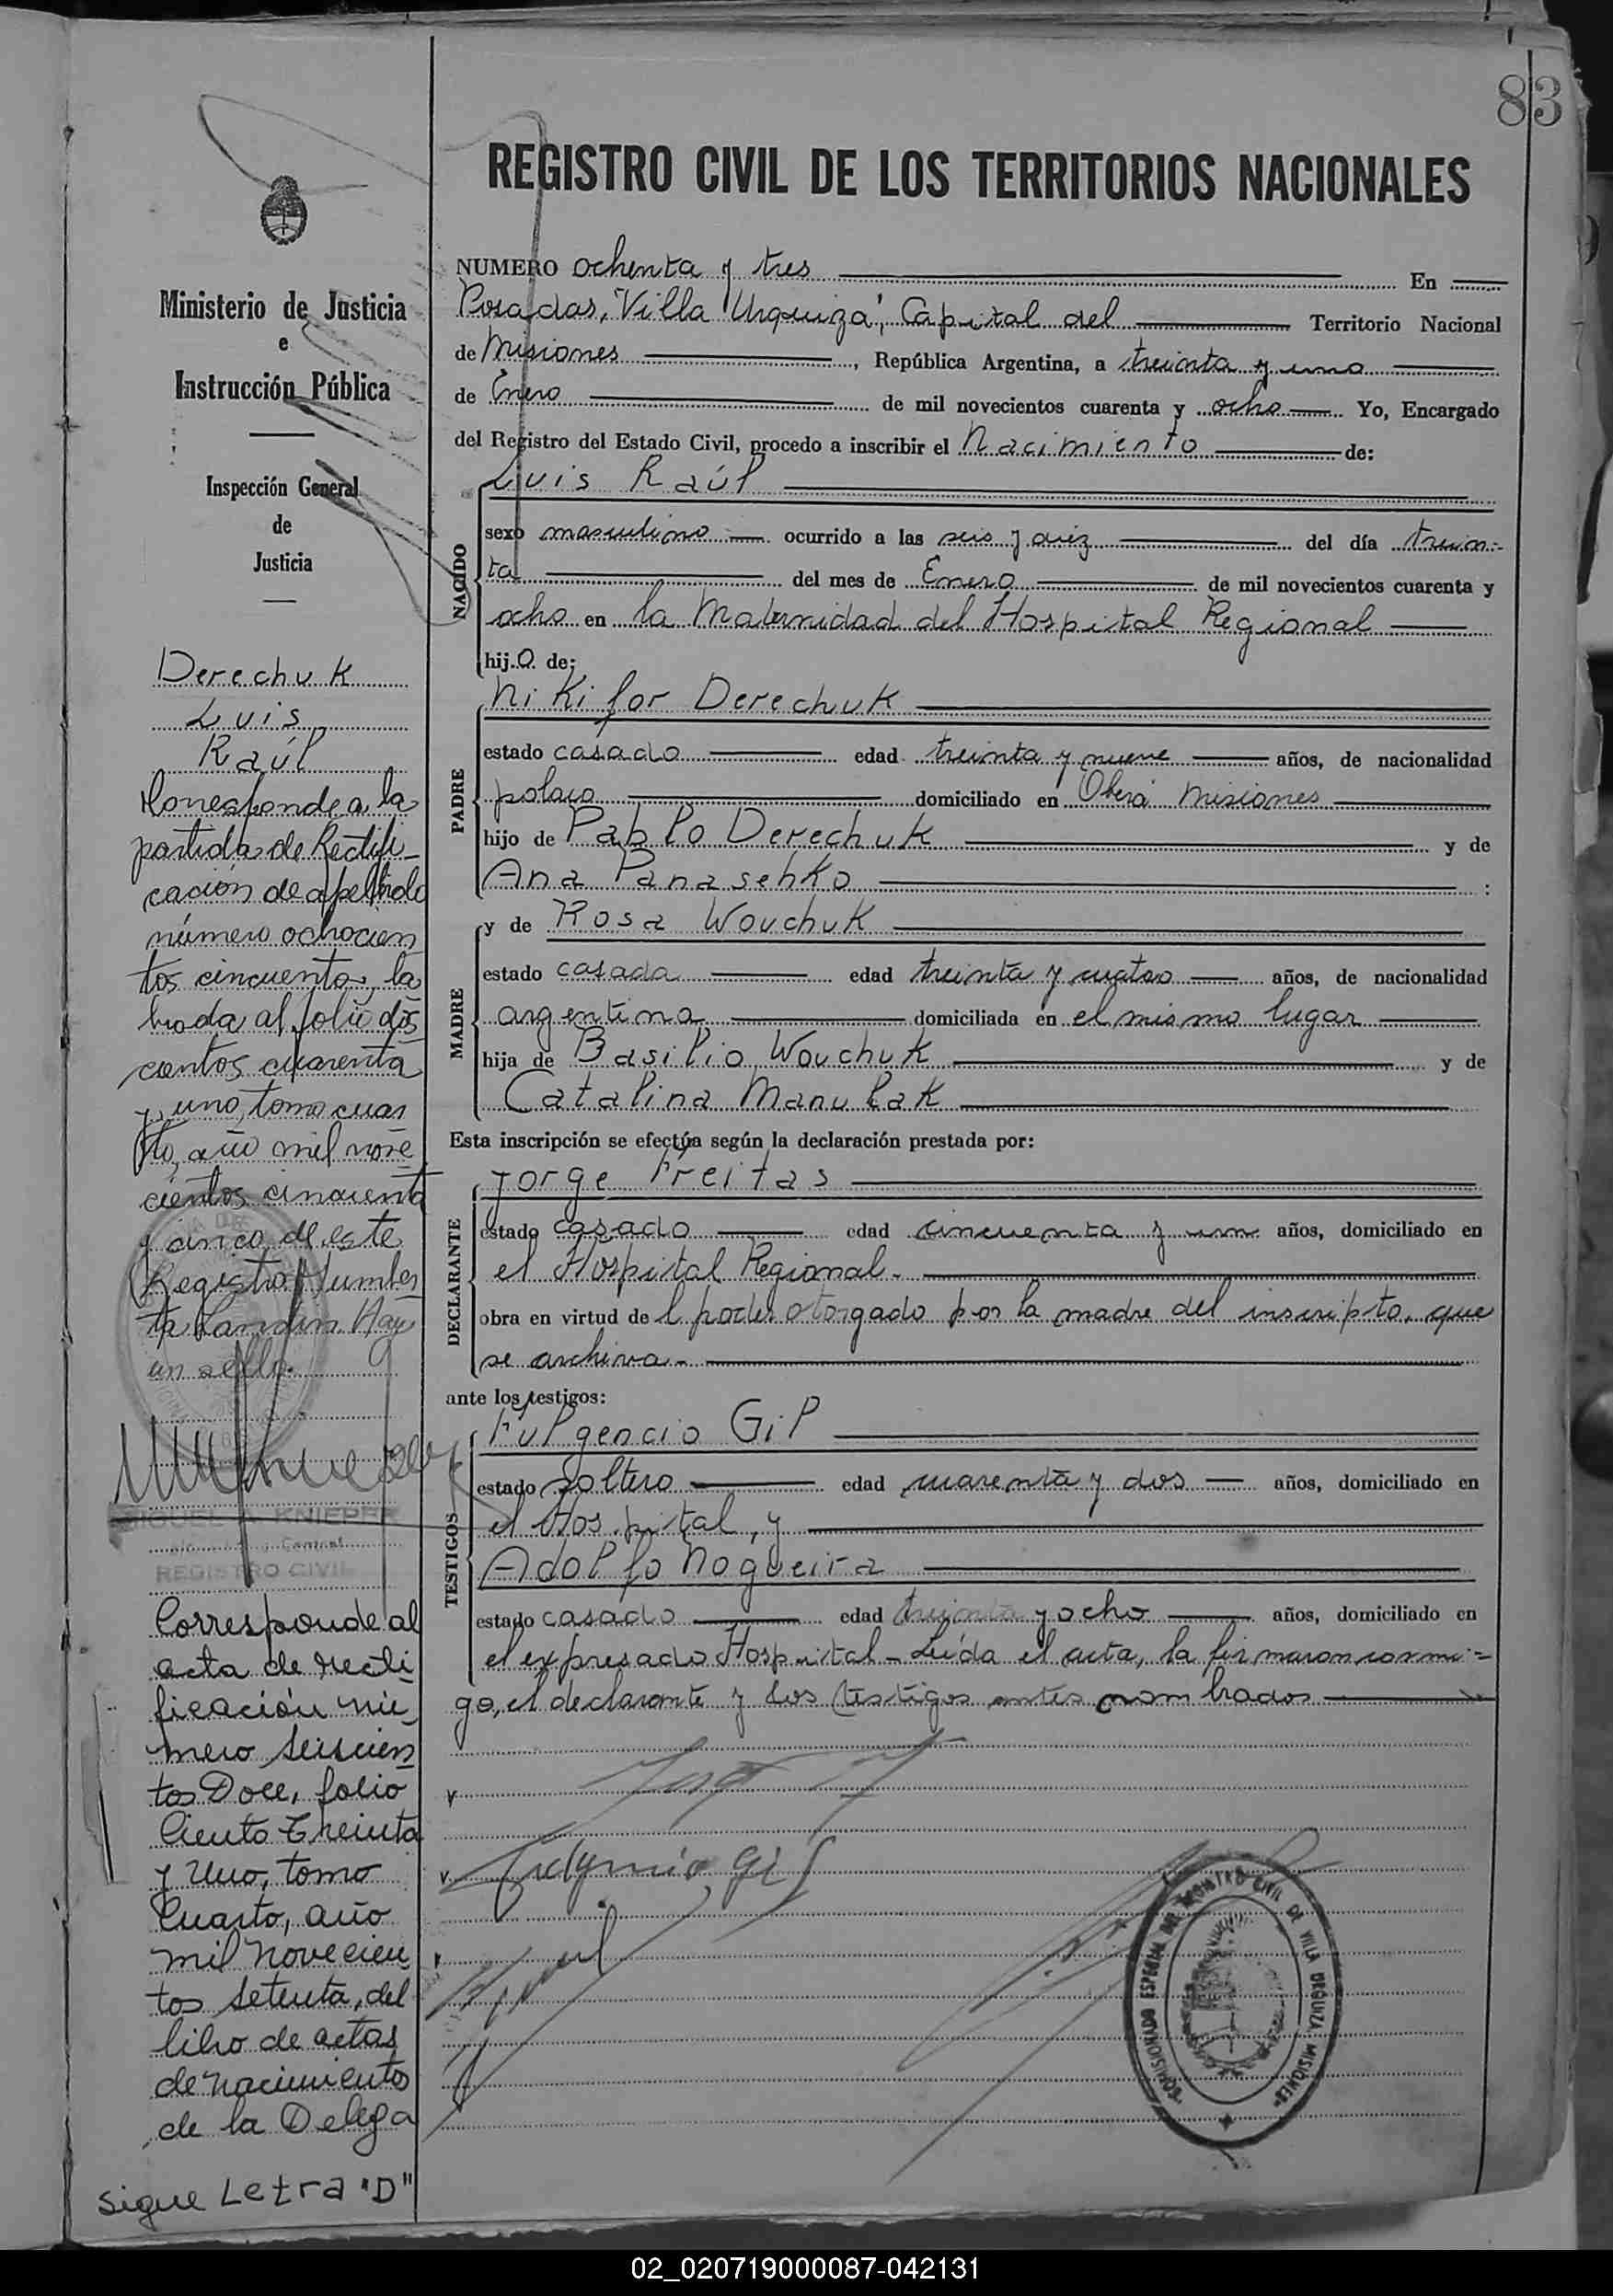 83
REGISTRO CIVIL DE LOS TERRITORIOS NACIONALES
Ministerio de Justicia
e
Instrucción Pública
Inspección General
de
Justicia
Derechuk
Luis
Raúl
Corresponde a la
partida de Rectifi-
cación de apellido
número ochocien
tos cincuenta, la
brada al folio dos
cientos cuarenta
y uno, tomo cuar
to, año mil nove
cientos cincuenta
y cinco de este
Registro. Humber
to Landin Hay
un sello.
MIGUEL A. KNIEPER
REGISTRO CIVIL
Corresponde al
acta de recti
ficación nú
mero seiscien
tos Doce, folio
Ciento Treinta
y Uno, tomo
Cuarto, año
mil novecien
tos setenta, del
libro de actas
de nacimientos
de la Delega
Sigue Letra "D"
NUMERO ochenta y tres En
Posadas, "Villa Urquiza", Capital del Territorio Nacional
de Misiones, República Argentina, a treinta y uno
de Enero de mil novecientos cuarenta y ocho Yo, Encargado
del Registro del Estado Civil, procedo a inscribir el Nacimiento de:
NACIDO
Luis Raúl
sexo masculino ocurrido a las seis y diez del día trein=
ta del mes de Enero de mil novecientos cuarenta y
ocho en la Maternidad del Hospital Regional
hijo de:
PADRE
Nikifor Derechuk
estado casado edad treinta y nueve años, de nacionalidad
polaco domiciliado en Oberá Misiones
hijo de Pablo Derechuk y de
Ana Panasehko :
MADRE
y de Rosa Wouchuk
estado casada edad treinta y cuatro años, de nacionalidad
argentina domiciliada en el mismo lugar
hija de Basilio Wouchuk y de
Catalina Manulak
Esta inscripción se efectúa según la declaración prestada por:
DECLARANTE
Jorge Freitas
estado casado edad cincuenta y un años, domiciliado en
el Hospital Regional.-
obra en virtud del poder otorgado por la madre del inscripto, que
se archiva.-
ante los testigos:
TESTIGOS
Fulgencio Gil
estado soltero edad cuarenta y dos años, domiciliado en
el Hospital, y
Adolfo Nogueira
estado casado edad treinta y ocho años, domiciliado en
el expresado Hospital- Leída el acta, la firmaron conmi=
go, el declarante y los testigos antes nombrados
Fulgencio Gil
COMISIONADO ESPECIAL DEL REGISTRO CIVIL DE VILLA URQUIZA MISIONES
02_020719000087-042131